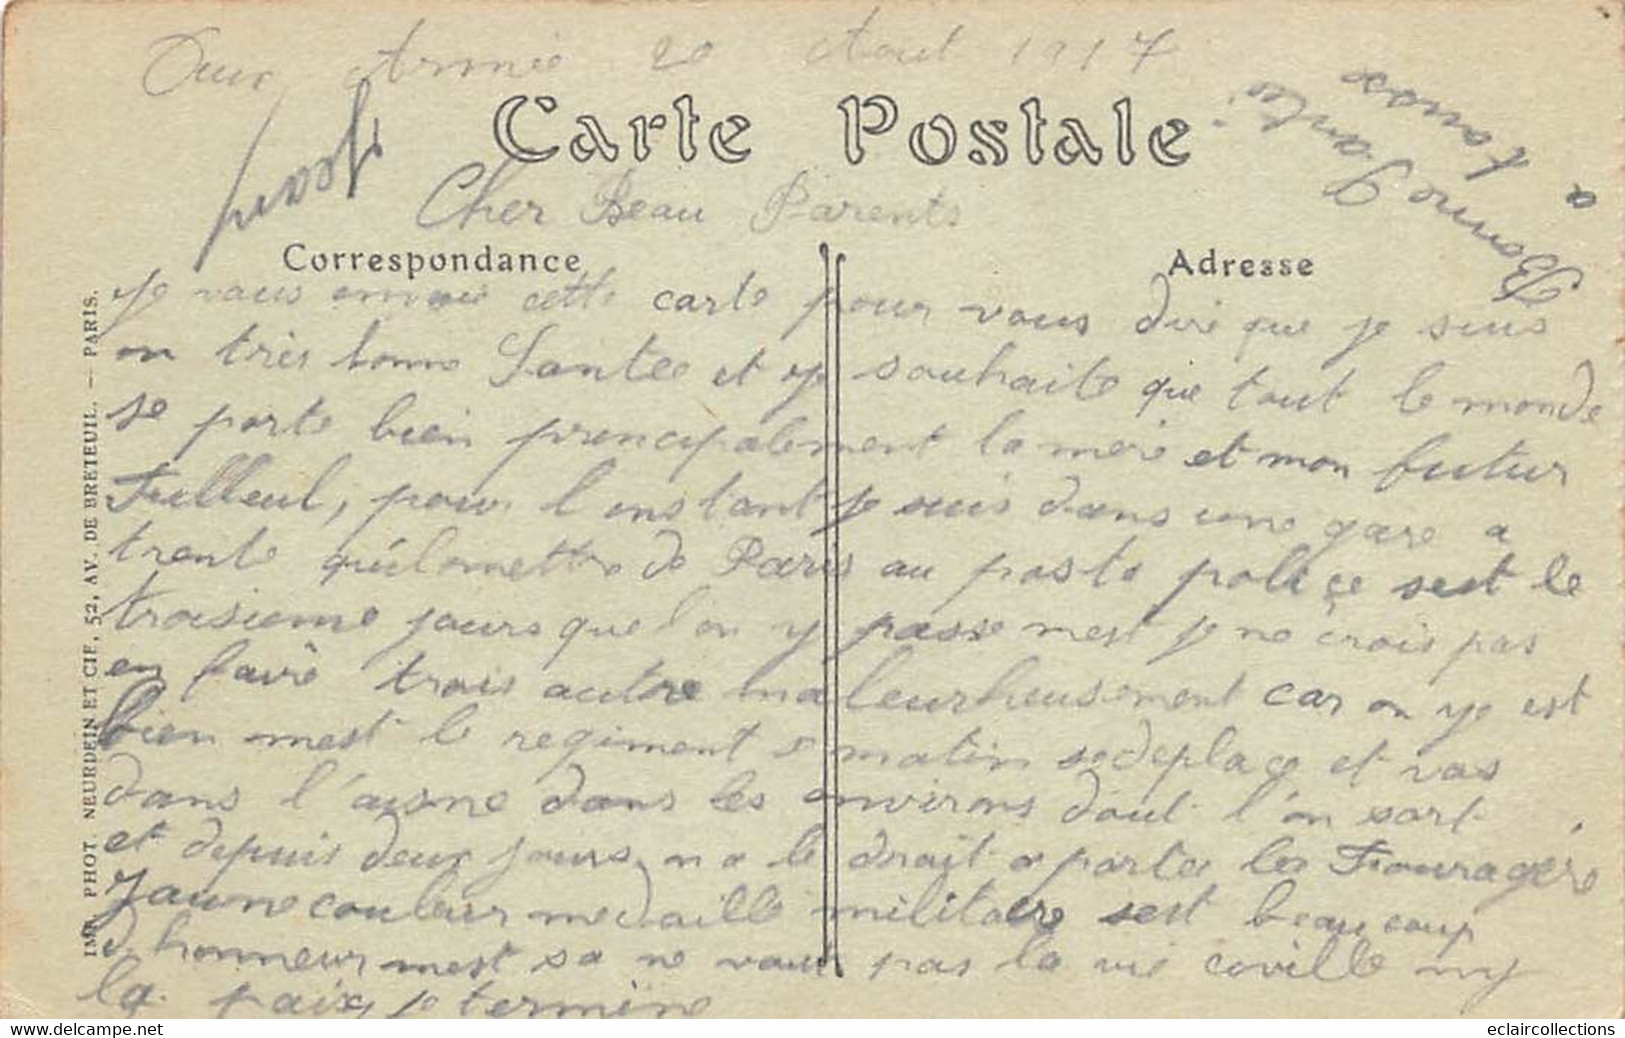 Aux Armé 20 Aout 1917
Carte Postale
Cher Beau Parents
Correspondance
Adresse
Je vous envoie cette carte pour vous dire que je suis
en très bonne Santee et je souhaite que tout le monde
se porte bien principalement la mere et mon futur
Filleul, pour l'instant je suis dans une gare a
trente quilomettre de Paris au poste police sest le
troisieme jours que l'on y passe mest je ne crois pas
en faire trois autre maleurheusement car on ye est
bien mest le regiment matin se deplace et vas
dans l'aisne dans les environs dout l'on sort
et depuis deux jours on a le droit a porte les Fouragere
Jaune couleur medaille militaire sest beaucoup
d'honneur mest sa ne vaut pas la vie civille ny
la paix, je termine
Bonne Santé
a tous
IMP. PHOT. NEURDEIN ET CIE, 52, AV. DE BRETEUIL. — PARIS.
delcampe.net
eclaircollections